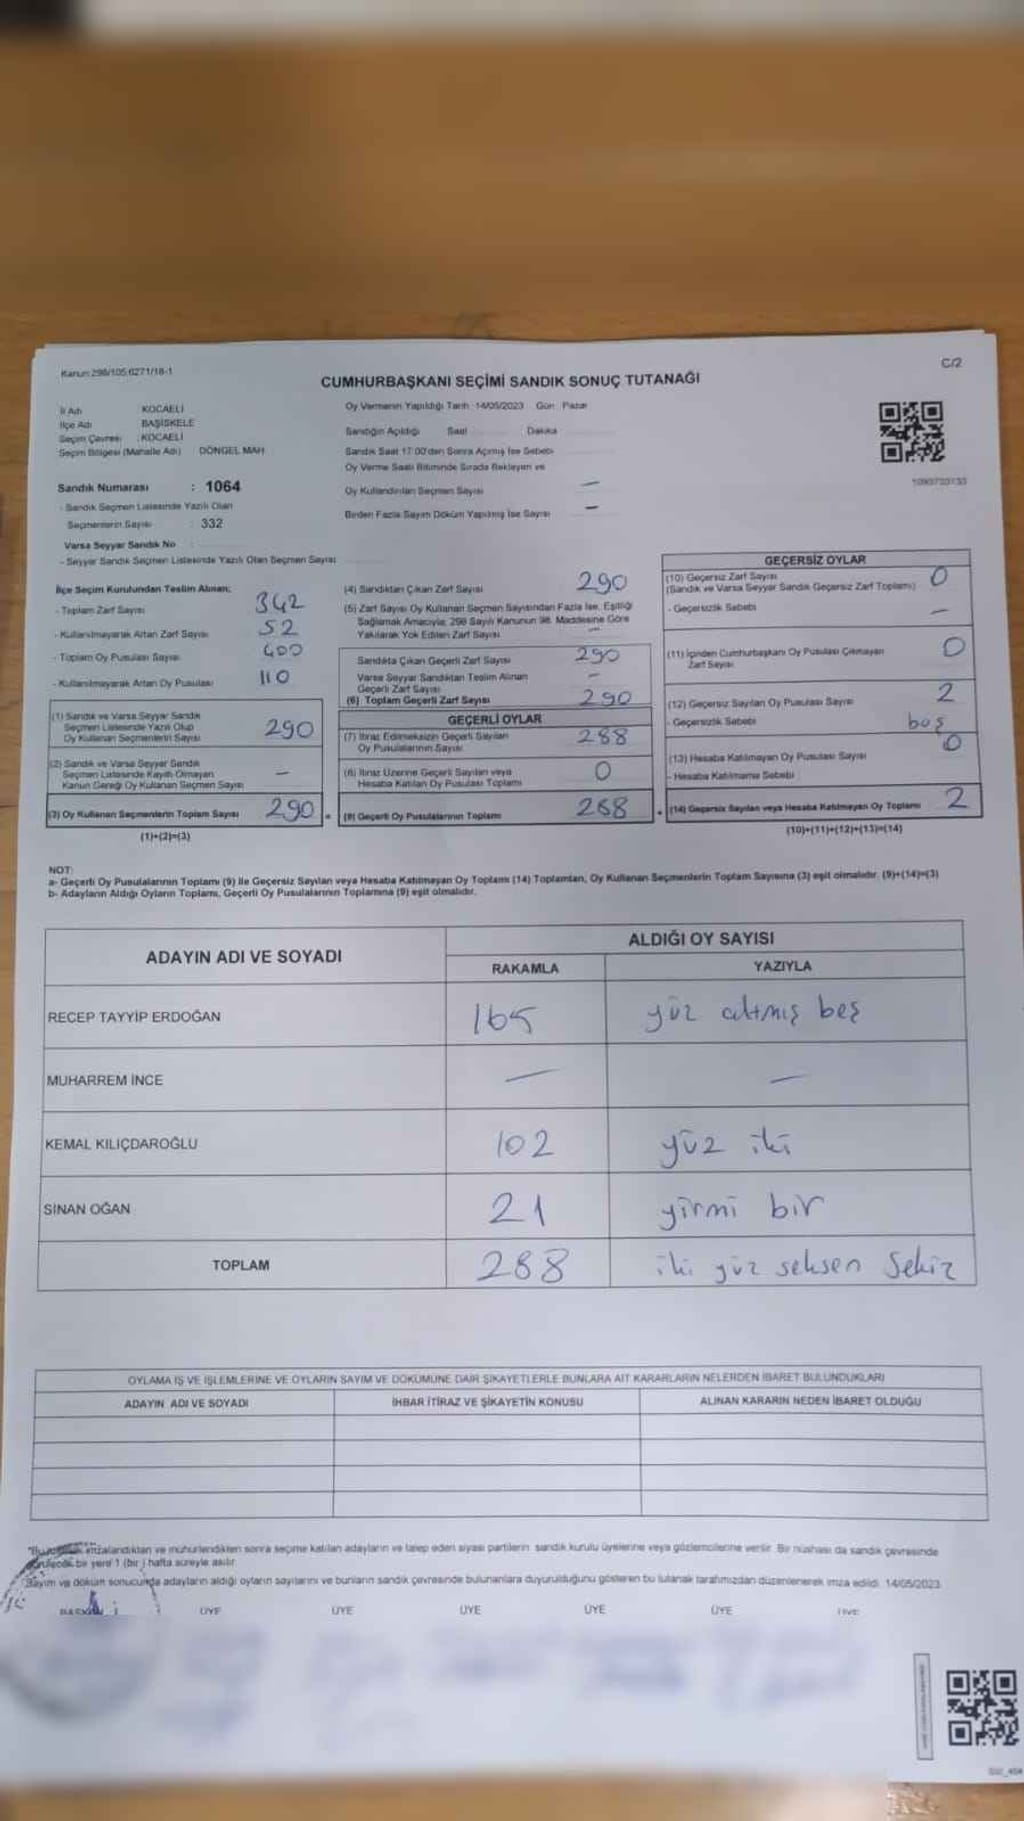 Kanun:298/105 6271/18-1
C/2
CUMHURBAŞKANI SEÇİMİ SANDIK SONUÇ TUTANAĞI
İl Adı KOCAELİ
İlçe Adı BAŞİSKELE
Seçim Çevresi : KOCAELİ
Seçim Bölgesi (Mahalle Adı) DÖNGEL MAH
Sandık Numarası : 1064
- Sandık Seçmen Listesinde Yazılı Olan
Seçmenlerin Sayısı : 332
Varsa Seyyar Sandık No
- Seyyar Sandık Seçmen Listesinde Yazılı Olan Seçmen Sayısı
Oy Vermenin Yapıldığı Tarih : 14/05/2023 Gün : Pazar
Sandığın Açıldığı Saat Dakika
Sandık Saat 17:00'den Sonra Açılmış İse Sebebi
Oy Verme Saati Bitiminde Sırada Bekleyen ve
Oy Kullandırılan Seçmen Sayısı —
Birden Fazla Sayım Döküm Yapılmış İse Sayısı —
1090733133
İlçe Seçim Kurulundan Teslim Alınan:
- Toplam Zarf Sayısı 342
- Kullanılmayarak Artan Zarf Sayısı 52
- Toplam Oy Pusulası Sayısı 400
- Kullanılmayarak Artan Oy Pusulası 110
(1) Sandık ve Varsa Seyyar Sandık
Seçmen Listesinde Yazılı Olup
Oy Kullanan Seçmenlerin Sayısı 290
(2) Sandık ve Varsa Seyyar Sandık
Seçmen Listesinde Kayıtlı Olmayan
Kanun Gereği Oy Kullanan Seçmen Sayısı —
(3) Oy Kullanan Seçmenlerin Toplam Sayısı 290
(1)+(2)=(3)
(4) Sandıktan Çıkan Zarf Sayısı 290
(5) Zarf Sayısı Oy Kullanan Seçmen Sayısından Fazla İse, Eşitliği
Sağlamak Amacıyla; 298 Sayılı Kanunun 98. Maddesine Göre
Yakılarak Yok Edilen Zarf Sayısı —
Sandıkta Çıkan Geçerli Zarf Sayısı 290
Varsa Seyyar Sandıktan Teslim Alınan
Geçerli Zarf Sayısı —
(6) Toplam Geçerli Zarf Sayısı 290
GEÇERLİ OYLAR
(7) İtiraz Edilmeksizin Geçerli Sayılan
Oy Pusulalarının Sayısı 288
(8) İtiraz Üzerine Geçerli Sayılan veya
Hesaba Katılan Oy Pusulası Toplamı 0
(9) Geçerli Oy Pusulalarının Toplamı 288
GEÇERSİZ OYLAR
(10) Geçersiz Zarf Sayısı 0
(Sandık ve Varsa Seyyar Sandık Geçersiz Zarf Toplamı)
- Geçersizlik Sebebi —
(11) İçinden Cumhurbaşkanı Oy Pusulası Çıkmayan 0
Zarf Sayısı
(12) Geçersiz Sayılan Oy Pusulası Sayısı 2
- Geçersizlik Sebebi boş
(13) Hesaba Katılmayan Oy Pusulası Sayısı 0
- Hesaba Katılmama Sebebi
(14) Geçersiz Sayılan veya Hesaba Katılmayan Oy Toplamı 2
(10)+(11)+(12)+(13)=(14)
NOT:
a- Geçerli Oy Pusulalarının Toplamı (9) ile Geçersiz Sayılan veya Hesaba Katılmayan Oy Toplamı (14) Toplamları, Oy Kullanan Seçmenlerin Toplam Sayısına (3) eşit olmalıdır. (9)+(14)=(3)
b- Adayların Aldığı Oyların Toplamı, Geçerli Oy Pusulalarının Toplamına (9) eşit olmalıdır.
ADAYIN ADI VE SOYADI ALDIĞI OY SAYISI
RAKAMLA YAZIYLA
RECEP TAYYİP ERDOĞAN 165 yüz altmış beş
MUHARREM İNCE — —
KEMAL KILIÇDAROĞLU 102 yüz iki
SİNAN OĞAN 21 yirmi bir
TOPLAM 288 iki yüz seksen sekiz
OYLAMA İŞ VE İŞLEMLERİNE VE OYLARIN SAYIM VE DÖKÜMÜNE DAİR ŞİKAYETLERLE BUNLARA AİT KARARLARIN NELERDEN İBARET BULUNDUKLARI
ADAYIN ADI VE SOYADI İHBAR İTİRAZ VE ŞİKAYETİN KONUSU ALINAN KARARIN NEDEN İBARET OLDUĞU
imzalandıktan ve mühürlendikten sonra seçime katılan adayların ve talep eden siyasi partilerin sandık kurulu üyelerine veya gözlemcilerine verilir. Bir nüshası da sandık çevresinde
görülecek bir yere 1 (bir) hafta süreyle asılır.
Sayım ve döküm sonucunda adayların aldığı oyların sayılarını ve bunların sandık çevresinde bulunanlara duyurulduğunu gösteren bu tutanak tarafımızdan düzenlenerek imza edildi. 14/05/2023
ÜYE ÜYE ÜYE ÜYE ÜYE